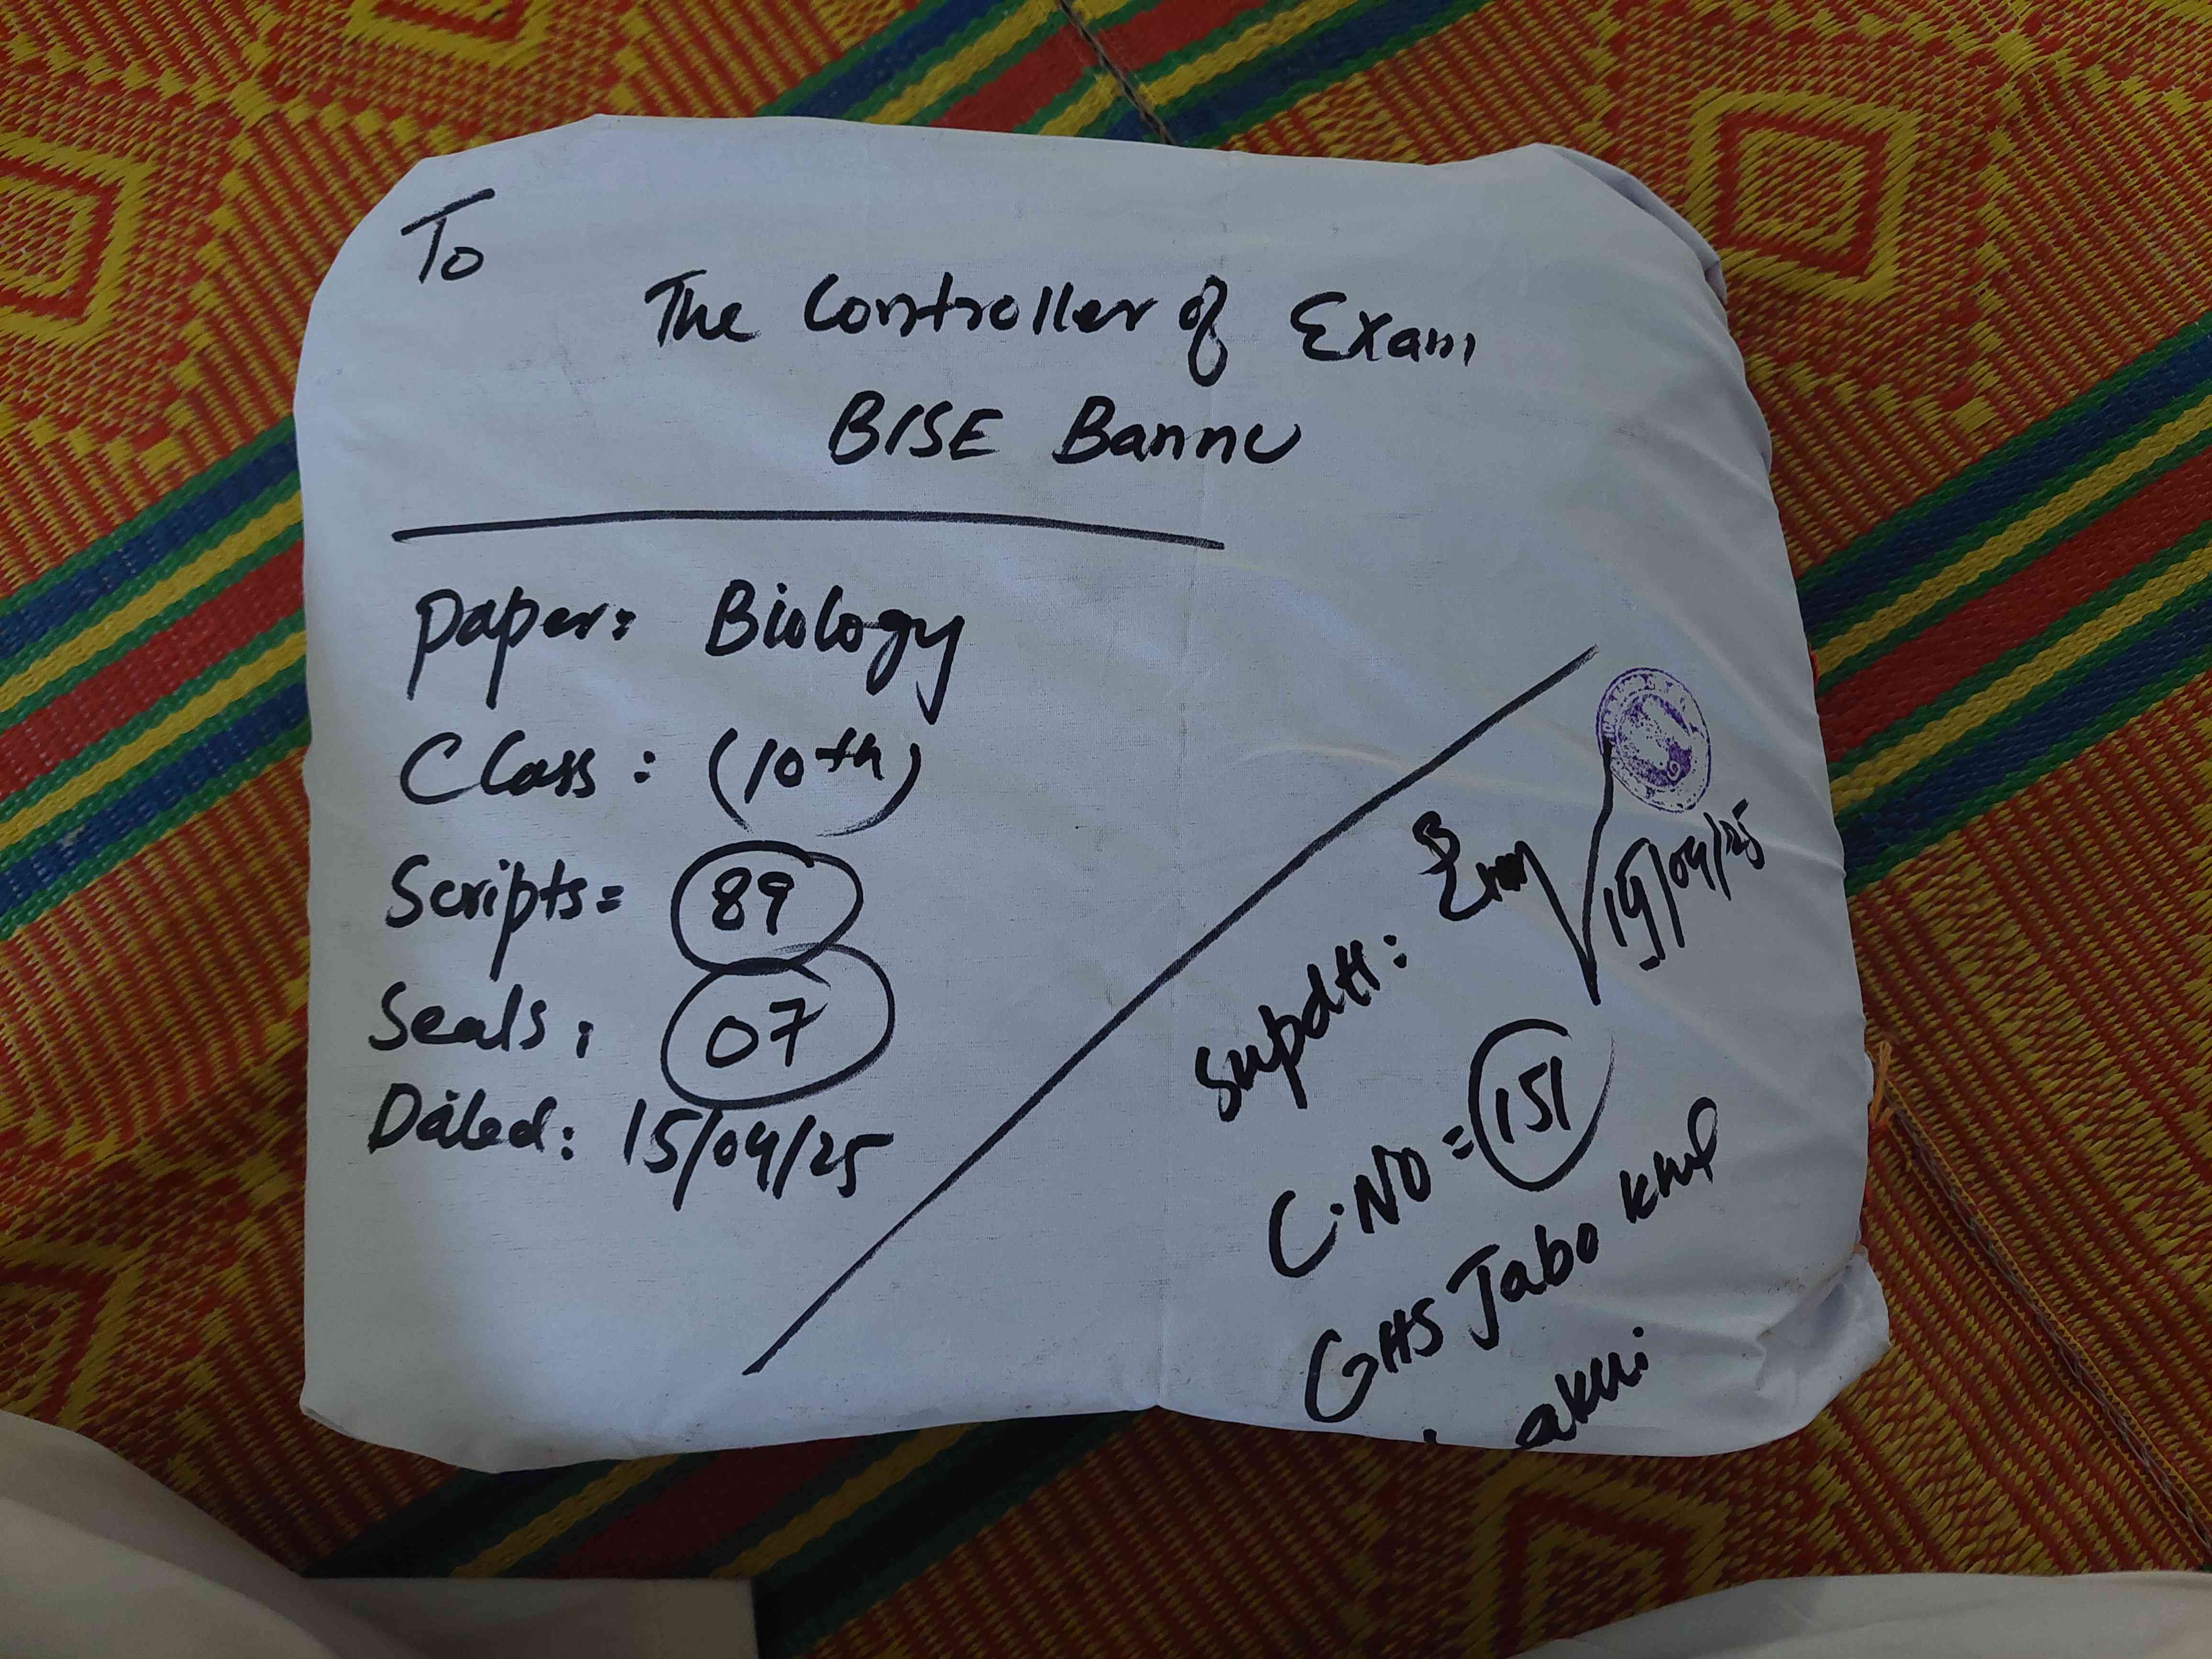 To
The Controller of Exam
BISE Bannu
Paper: Biology
Class: (10th)
Scripts= 89
Seals: 07
Dated: 15/04/25
Supdtt:
15/04/25
C.NO = 151
GHS Jabo Khel